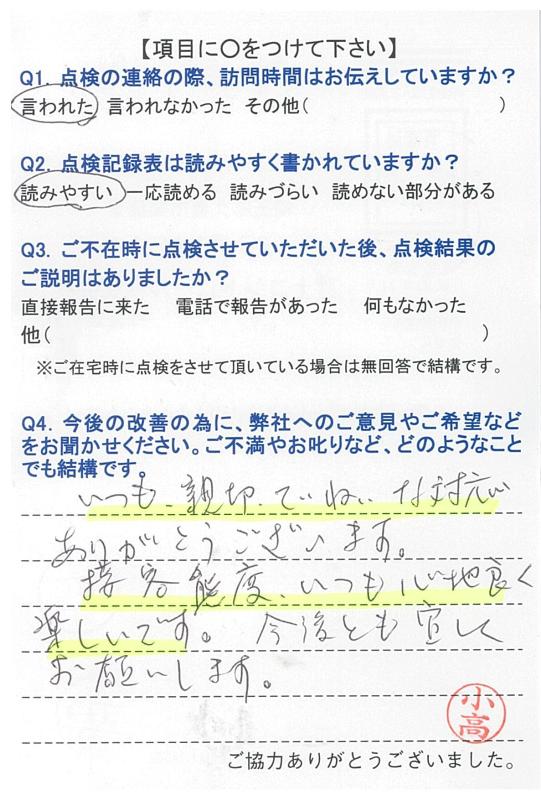 【項目に〇をつけて下さい】
Q1. 点検の連絡の際、訪問時間はお伝えしていますか？
言われた 言われなかった その他( )
Q2. 点検記録表は読みやすく書かれていますか？
読みやすい 一応読める 読みづらい 読めない部分がある
Q3. ご不在時に点検させていただいた後、点検結果の
ご説明はありましたか？
直接報告に来た 電話で報告があった 何もなかった
他( )
※ご在宅時に点検をさせて頂いている場合は無回答で結構です。
Q4. 今後の改善の為に、弊社へのご意見やご希望など
をお聞かせください。ご不満やお叱りなど、どのようなこと
でも結構です。
いつも、親切、ていねいな対応
ありがとうございます。
接客態度、いつも心地良く
楽しいです。今後とも宜しく
お願いします。
小高
ご協力ありがとうございました。